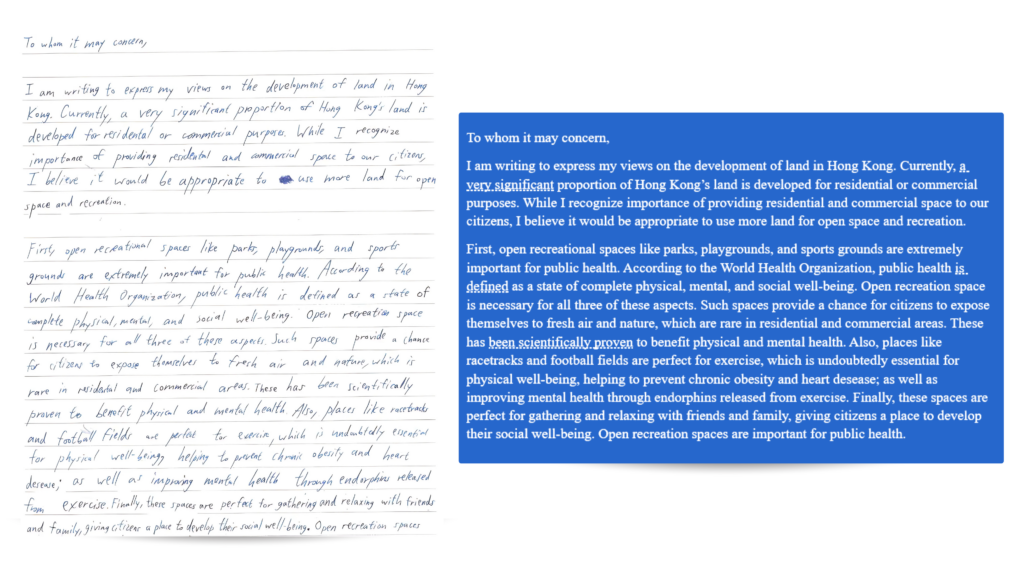 To whom it may concern,
I am writing to express my views on the development of land in Hong
Kong. Currently, a very significant proportion of Hong Kong's land is
developed for residental or commercial purposes. While I recognize
importance of providing residental and commercial space to our citizens,
I believe it would be appropriate to use more land for open
space and recreation.
First, open recreational spaces like parks, playgrounds, and sports
grounds are extremely important for public health. According to the
World Health Organization, public health is defined as a state of
complete physical, mental, and social well-being. Open recreation space
is necessary for all three of these aspects. Such spaces provide a chance
for citizens to expose themselves to fresh air and nature, which is
rare in residental and commercial areas. These has been scientifically
proven to benefit physical and mental health. Also, places like racetracks
and football fields are perfect for exercise, which is undoubtedly essential
for physical well-being, helping to prevent chronic obesity and heart
desease; as well as improving mental health through endorphins released
from exercise. Finally, these spaces are perfect for gathering and relaxing with friends
and family, giving citizens a place to develop their social well-being. Open recreation spaces
To whom it may concern,
I am writing to express my views on the development of land in Hong Kong. Currently, a
very significant proportion of Hong Kong's land is developed for residential or commercial
purposes. While I recognize importance of providing residential and commercial space to our
citizens, I believe it would be appropriate to use more land for open space and recreation.
First, open recreational spaces like parks, playgrounds, and sports grounds are extremely
important for public health. According to the World Health Organization, public health is
defined as a state of complete physical, mental, and social well-being. Open recreation space
is necessary for all three of these aspects. Such spaces provide a chance for citizens to expose
themselves to fresh air and nature, which are rare in residential and commercial areas. These
has been scientifically proven to benefit physical and mental health. Also, places like
racetracks and football fields are perfect for exercise, which is undoubtedly essential for
physical well-being, helping to prevent chronic obesity and heart desease; as well as
improving mental health through endorphins released from exercise. Finally, these spaces are
perfect for gathering and relaxing with friends and family, giving citizens a place to develop
their social well-being. Open recreation spaces are important for public health.